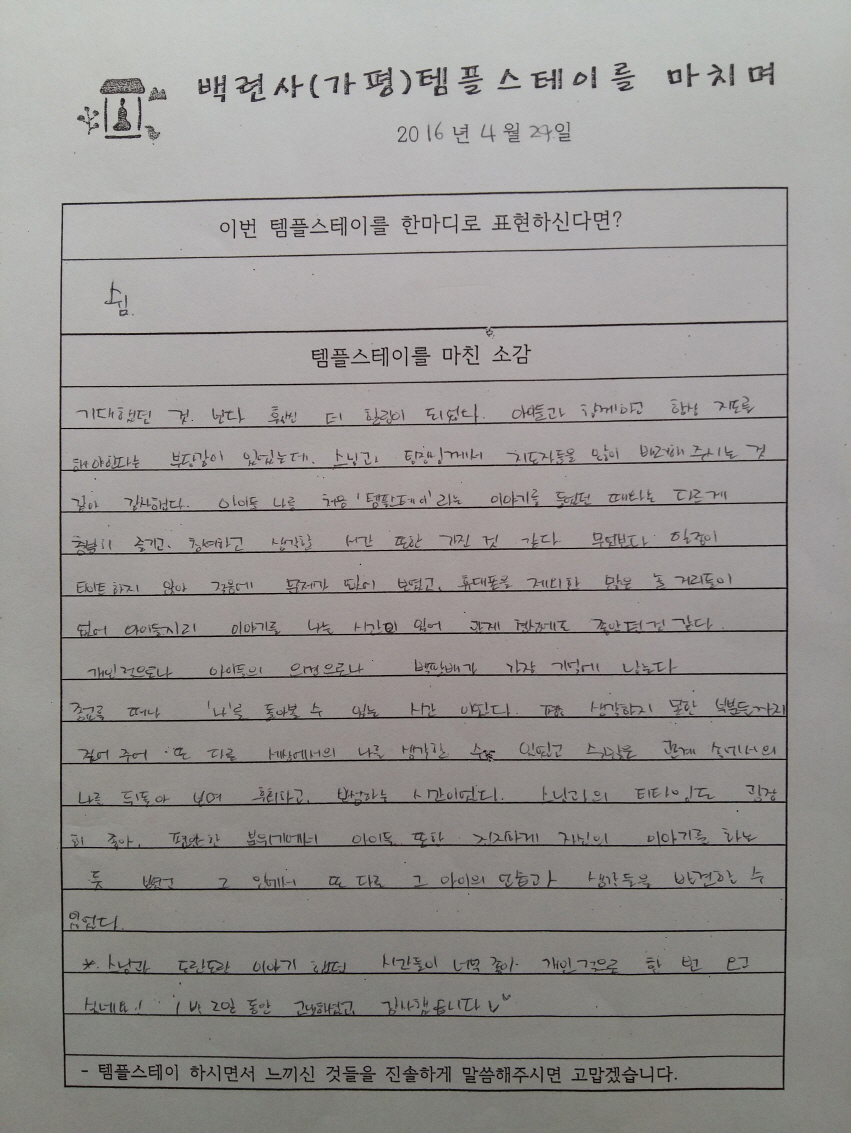 백련사(가평)템플스테이를 마치며
2016년 4월 27일
이번 템플스테이를 한마디로 표현하신다면?
쉼.
템플스테이를 마친 소감
기대했던 것 보다 훨씬 더 힐링이 되었다. 아이들과 함께하고 항상 지도를
해야한다는 부담감이 있었는데, 스님과, 팀장님께서 지도자들을 많이 배려해 주시는 것
같아 감사했다. 아이들 나름 처음 '템플스테이'라는 이야기를 들었던 때와는 다르게
충분히 즐기고, 참여하고 생각할 시간 또한 가진 것 같다. 무엇보다 일정이
타이트 하지 않아 적응에 문제가 없어 보였고, 휴대폰을 제외한 많은 놀 거리들이
없어 아이들끼리 이야기를 나눌 시간이 있어 관계 형성에도 좋았던것 같다.
개인적으로나 아이들의 의견으로나 백팔배가 가장 기억에 남는다
종교를 떠나 '나'를 돌아볼 수 있는 시간 이었다. 평소 생각하지 못한 부분들까지
짚어 주어 또 다른 세상에서의 나를 생각할 수 있었고 수많은 관계 속에서의
나를 뒤돌아 보며 후회하고, 반성하는 시간이었다. 스님과의 티타임도 굉장
히 좋아, 편안한 분위기에서 아이들 또한 진지하게 자신의 이야기를 하는
듯 했고 그 안에서 또 다른 그 아이의 모습과 생각들을 발견할 수
있었다.
*. 스님과 도란도란 이야기 했던 시간들이 너무 좋아 개인적으로 한 번 오고
싶네요! 1박 2일 동안 고생하셨고, 감사했습니다
- 템플스테이 하시면서 느끼신 것들을 진솔하게 말씀해주시면 고맙겠습니다.